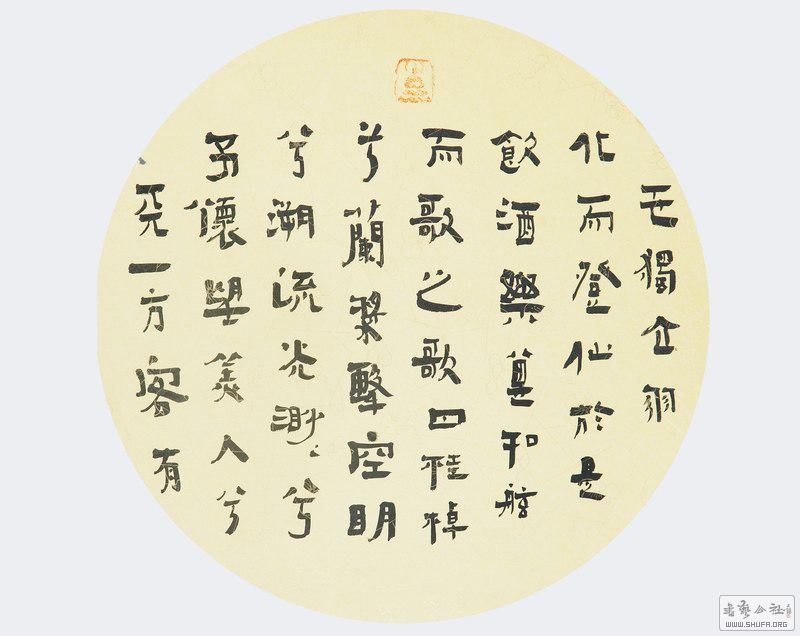 世獨立羽
化而登仙於是
飲酒樂甚扣舷
而歌之歌曰桂棹
兮蘭槳擊空明
兮溯流光渺〻兮
予懷望美人兮
天一方客有
书艺公社
WWW.SHUFA.ORG